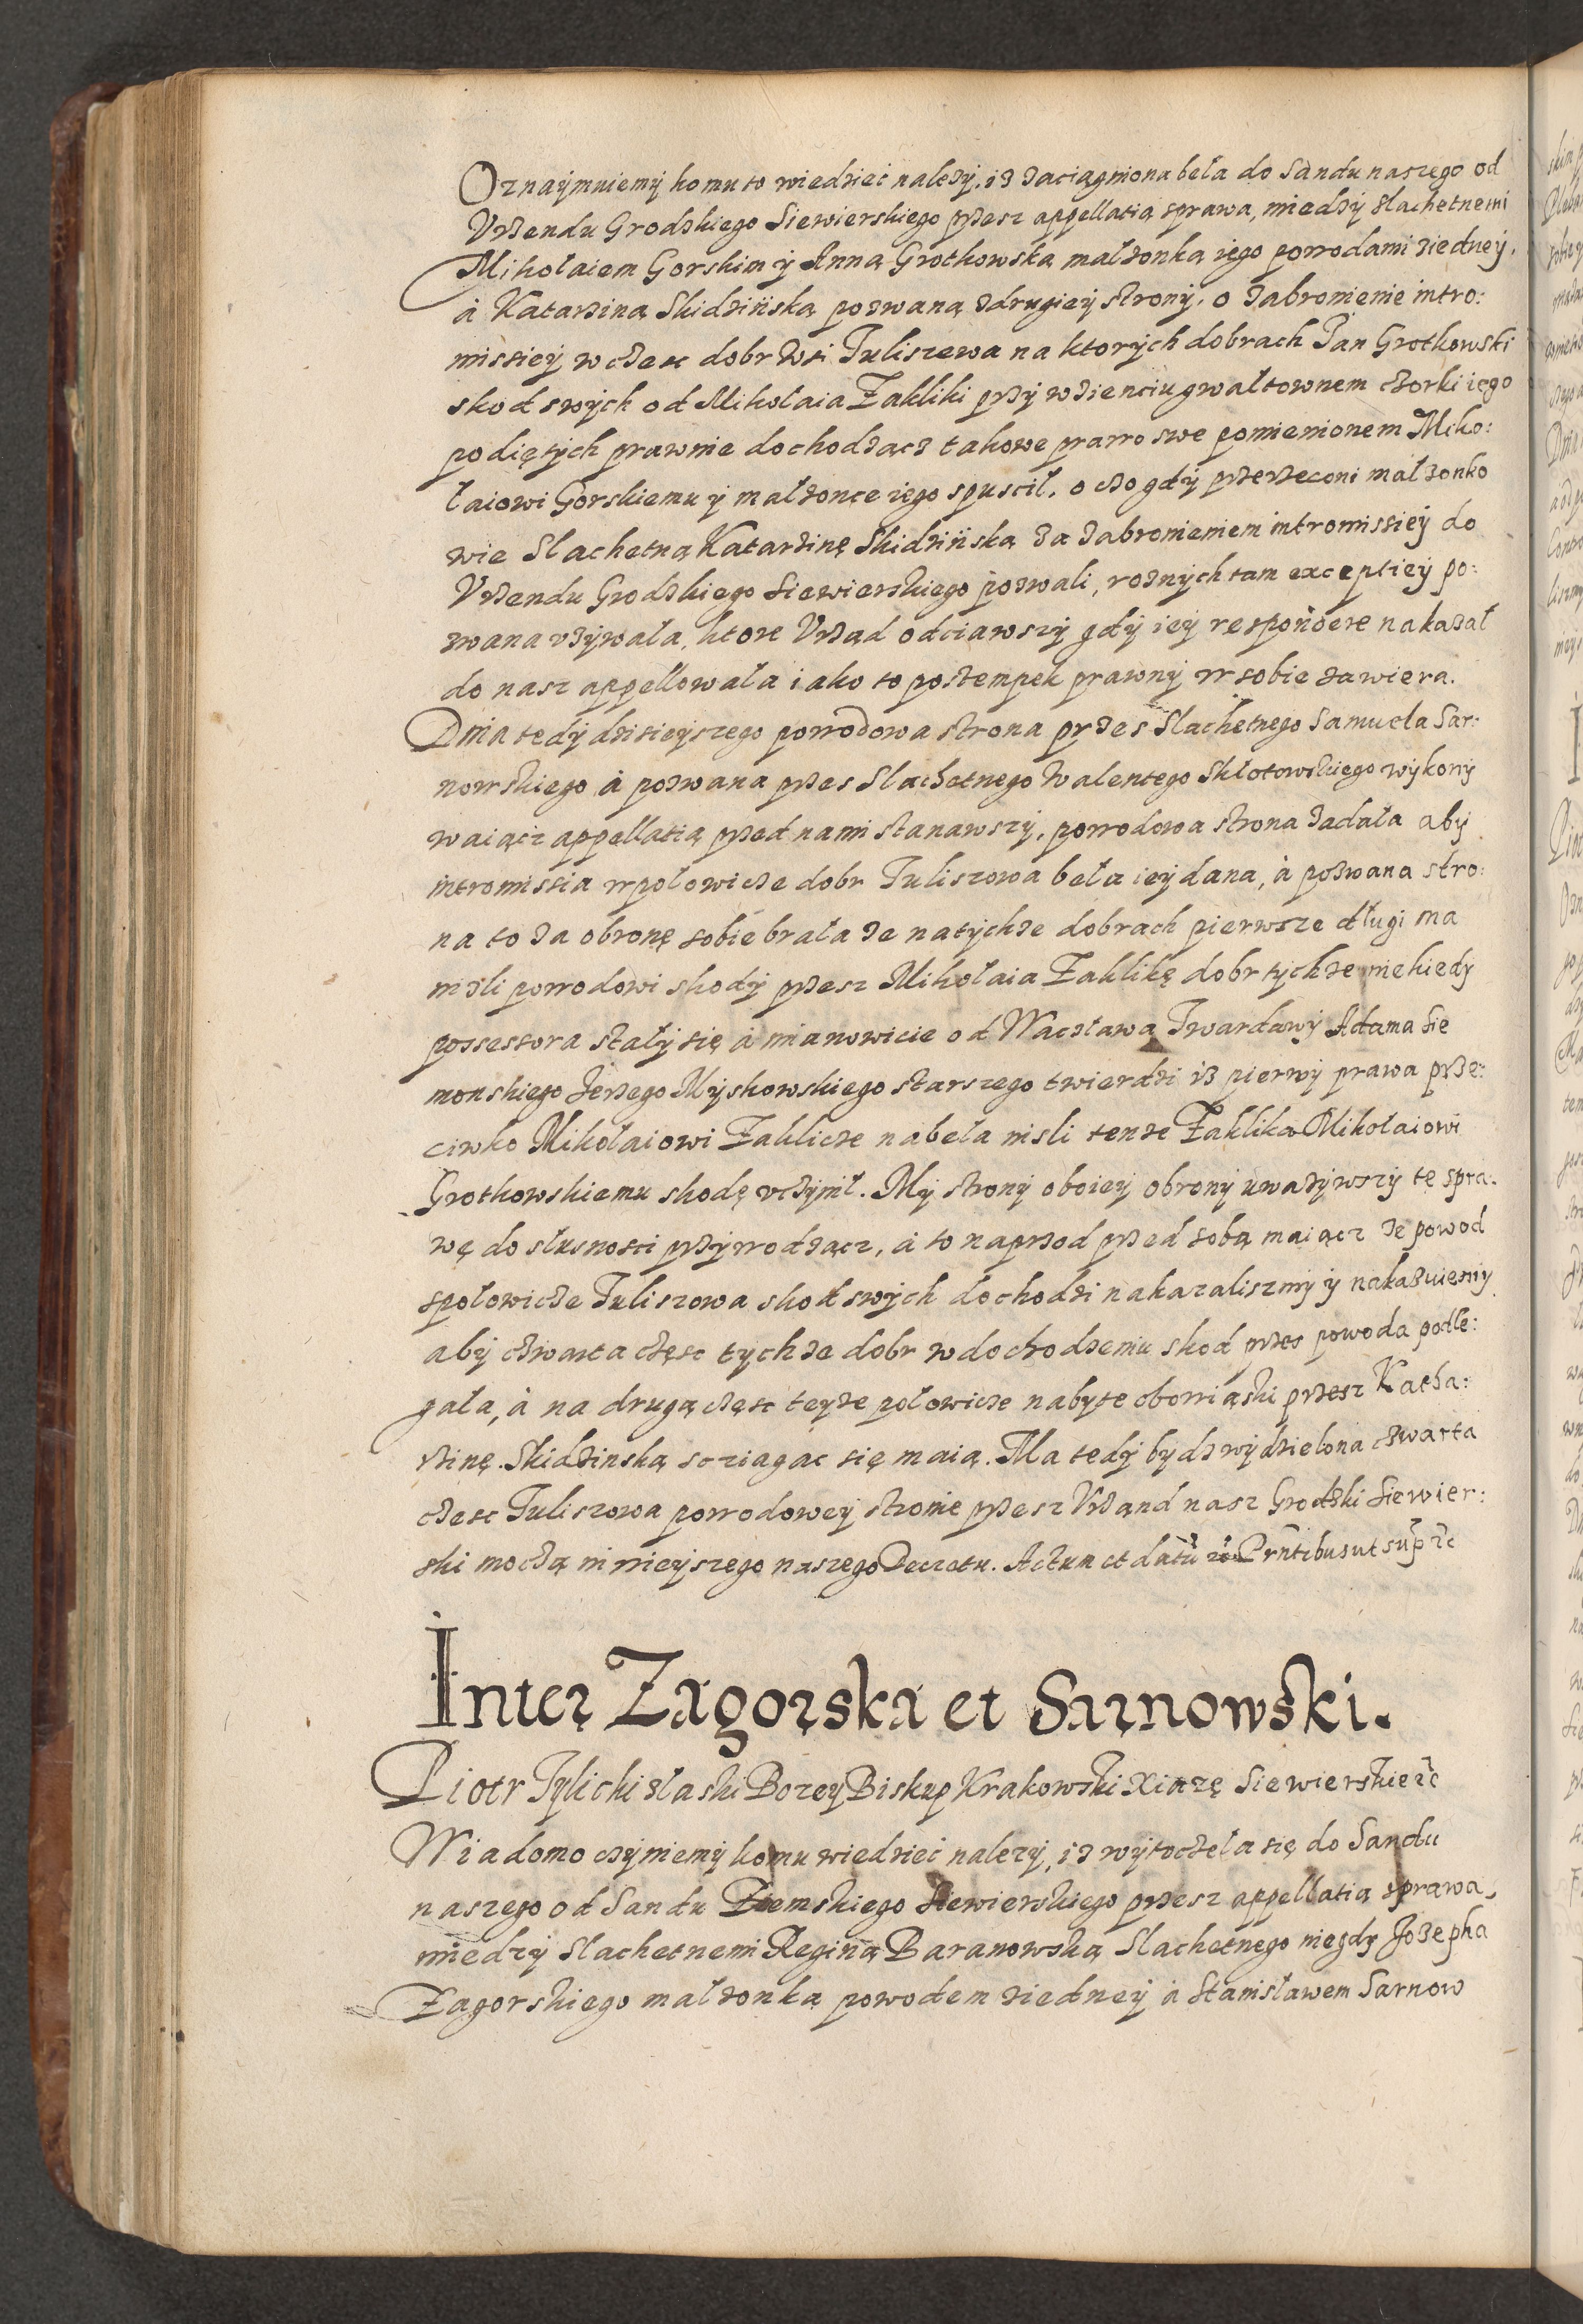 Oznaymuiemÿ komu to wiedzieć należÿ, iż zaciągniona beła do Sandu naszego od
Vrzendu Grodzkiego Siewierskiego przesz appellatią sprawa, miedzÿ slachetnemi
Mikołaiem Gorskim ÿ Anną Grotkowską małżonką iego powodami ziedneÿ,
à Katarziną Skidzińską pozwaną zdrugieÿ stronÿ, o zabronienie intro:
missieÿ w częsc dobr Wsi Tuliszewa na ktorÿch dobrach Pan Grotkowski
skod swÿch od Mikołaia Zakliki przÿ wzienciu gwałtownem czorki iego
podiętÿch prawnie dochodzącz takowe prawo swe pomienionem Miko:
łaiowi Gorskiemu ÿ małżonce iego spuscił, o czo gdÿ przerzeconi małżonko
wie Slachetną Katarzinę Skidzińską za zabronieniem intromissieÿ do
Vrzendu Grodzkiego Siewierskiego pozwali, roznÿch tam exceptieÿ po:
zwana vzÿwała, ktore Vrząd odciawszÿ gdÿ ieÿ respondere nakazał
do nasz appellowała iako to postempek prawnÿ w sobie zawiera.
Dnia tedÿ dzisieÿszego powodowa strona przes Slachetnego Samuela Sar:
nowskiego à pozwana przes Slachetnego Walentego Skłotowskiego wÿkonÿ
waiącz appellatią przed nami stanawszÿ, powodowa strona żadała abÿ
intromissia w połowicze dobr Tuliszowa beła ieÿ dana, à pozwana stro:
na to za obronę sobie brała że na tÿchże dobrach pierwsze długi ma
niżli powodowi skodÿ przesz Mikołaia Zaklikę dobr tÿchże niekiedÿ
possessora stałÿ się à mianowicie od Wacsława Twardawÿ Adama Sie
monskiego Jerzego Mÿskowskiego starszego twierdzi iż pierwÿ prawa prze:
ciwko Mikołaiowi Zaklicze nabeła nisli tenże Zaklika Mikołaiowi
Grotkowskiemu skodę vczÿnił. Mÿ stronÿ oboieÿ obronÿ uważÿwszÿ tę spra:
wę do słusnosci przÿwodzącz, à to naprzod przed sobą maiącz że powod
społowicze Tuliszowa skod swÿch dochodzi nakazaliszmÿ ÿ nakazuiemÿ
abÿ czwarta częsc tÿchże dobr w dochodzeniu skod przes powoda podle:
gała, à na drugą częsc teÿże połowicze nabÿte obowiąski przesz Katha:
rzinę Skidzinską scziagac się maią. Ma tedÿ bÿdz wÿdzielona czwarta
czesc Tuliszowa powodoweÿ stronie przesz Vrżand nasz Grodzki Siewier:
ski moczą ninieÿszego naszego Decretu. Actum et datū Prntibus ut sup zc
Inter Zagorska et Sarnowski.
Piotr Tÿlicki złaski Bozeÿ Biskup Krakowski Xiazę Siewierskie zc
Wiadomo czÿniemÿ komu wiedzieć należÿ, iż wÿtoczeła się do Sandu
naszego od Sandu Ziemskiego Siewierskiego przesz appellatią sprawa,
miedzÿ Slachetnemi Reginą Baranowską Slachetnego niegdy Jozepha
Zagorskiego małżonką powodem ziedneÿ à Stanisławem Sarnow